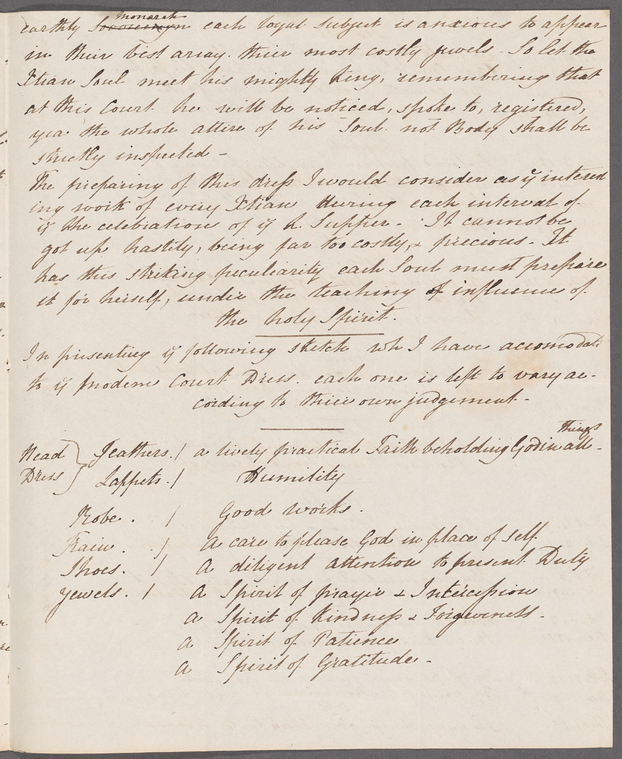 monarch
earthly Sovereign each loyal subject is anxious to appear
in their best array. their most costly jewels. So let the
Xtian Soul meet his mighty King, remembering that
at this Court he will be noticed, spoke to, registered,
yea the whole attire of his Soul not Body shall be
strictly inspected -
The preparing of this dress I would consider as ye interest
ing work of every Xtian during each interval of
ye the celebration of ye L. Supper - It cannot be
got up hastily, being far too costly, & precious - It
has this striking peculiarity each Soul must prepare
it for herself, under the teaching & influence of
the holy Spirit.
In presenting ye following sketch wh I have accomodat
to ye modern Court Dress. each one is left to vary ac-
cording to their own judgement -
Things
Head Feathers / a lively practical Faith beholding God in all -
Dress Lappets / Humility
Robe. / Good works.
Train. / A care to please God in place of Self.
Shoes. / A diligent attention to present Duty
Jewels. / a Spirit of prayer & Intercession
a Spirit of Kindness & Forgiveness -
a Spirit of Patience
a Spirit of Gratitude -